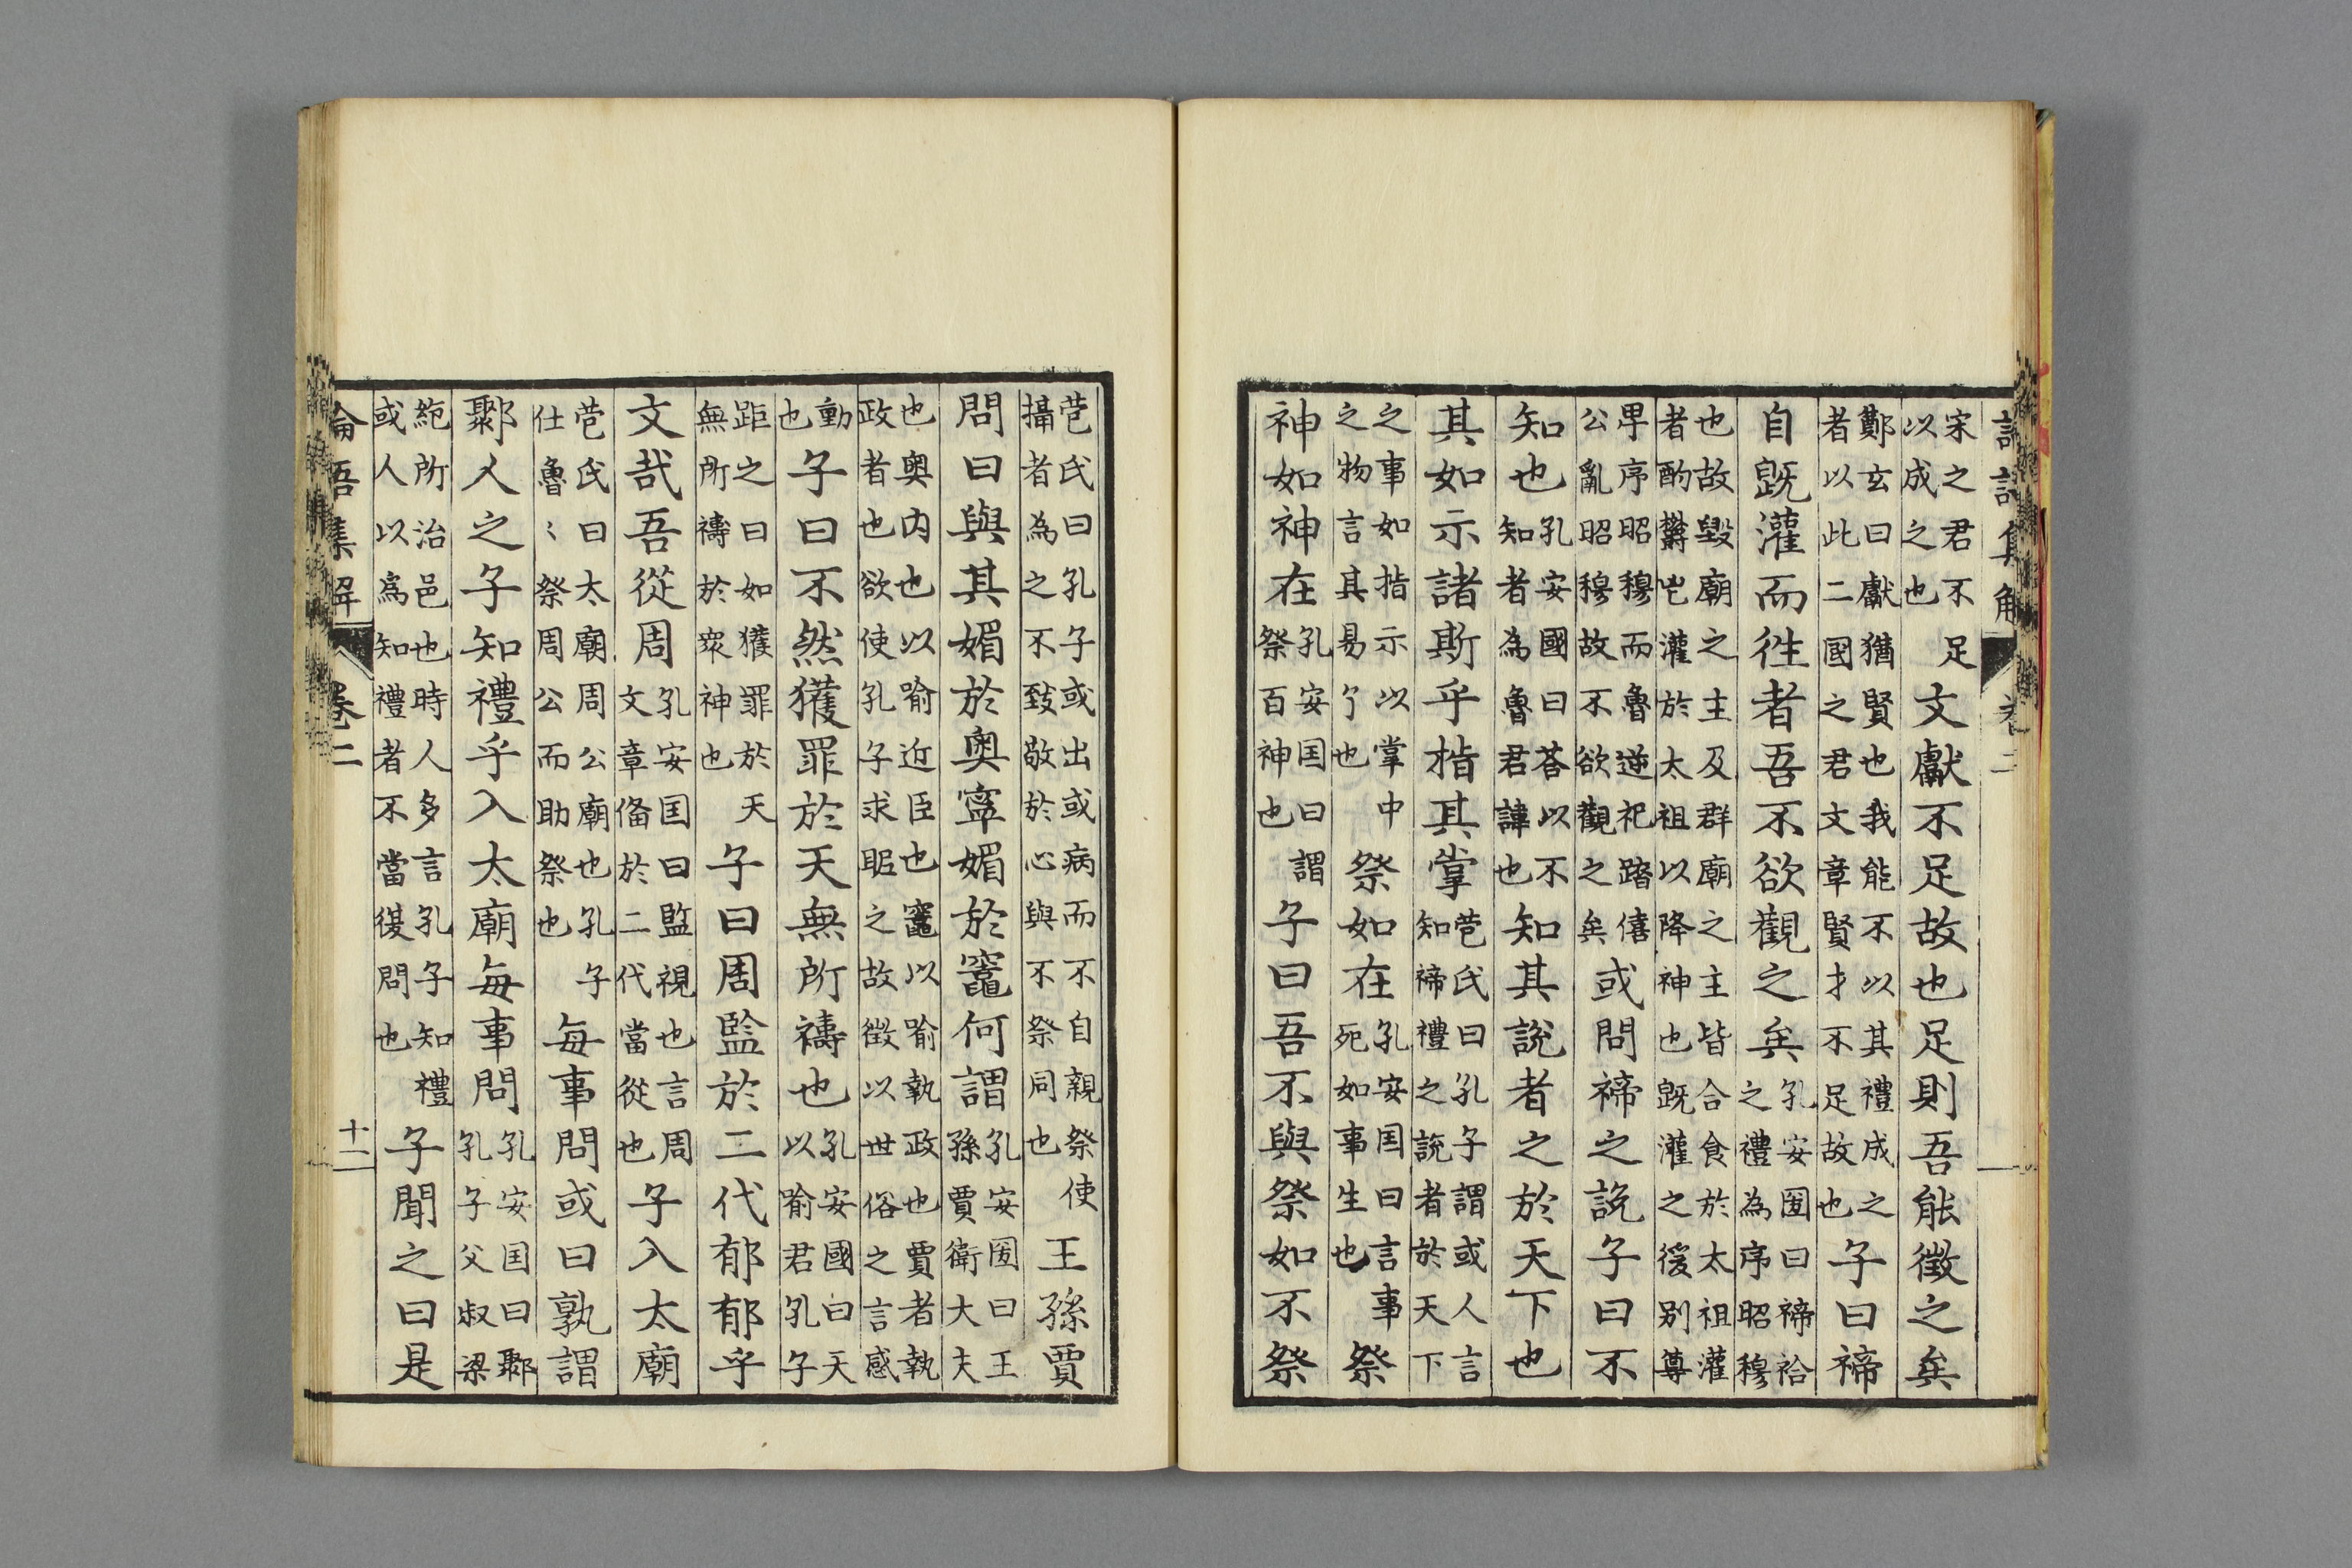 宋之君不足以成之也文獻不足故也足則吾能徵之矣
鄭玄曰獻猶賢也我能不以其禮成之者以此二國之君文章賢才不足故也子曰禘
自旣灌而徃者吾不欲觀之矣孔安圀曰禘祫之禮為序昭穆
也故毀廟之主及群廟之主皆合食於太祖灌者酌欝鬯灌於太祖以降神也旣灌之後别尊
卑序昭穆而魯逆祀躋僖公亂昭穆故不欲觀之矣或問禘之說子曰不
知也孔安國曰荅以不知者為魯君諱也知其說者之於天下也
其如示諸斯乎指其掌苞氏曰孔子謂或人言知禘禮之說者於天下
之事如指示以掌中之物言其易了也祭如在孔安国曰言事死如事生也祭
神如神在孔安国曰謂祭百神也子曰吾不與祭如不祭
苞氏曰孔子或出或病而不自親祭使攝者為之不致敬於心與不祭同也王孫賈
問曰與其媚於奥寧媚於竈何謂孔安圀曰王孫賈衛大夫
也奥内也以喻近臣也竈以喻執政也賈者執政者也欲使孔子求昵之故徵以世俗之言感
動也子曰不然獲罪於天無所禱也孔安國曰天以喻君孔子
距之曰如獲罪於天無所禱於衆神也子曰周監於二代郁郁乎
文哉吾從周孔安国曰監視也言周文章俻於二代當從也子入太廟
苞氏曰太廟周公廟也孔子仕魯〻祭周公而助祭也每事問或曰孰謂
鄹人之子知禮乎入太廟每事問孔安国曰鄹孔子父叔梁
紇所治邑也時人多言孔子知禮或人以為知禮者不當復問也子聞之曰是
論語集解 卷二 十二